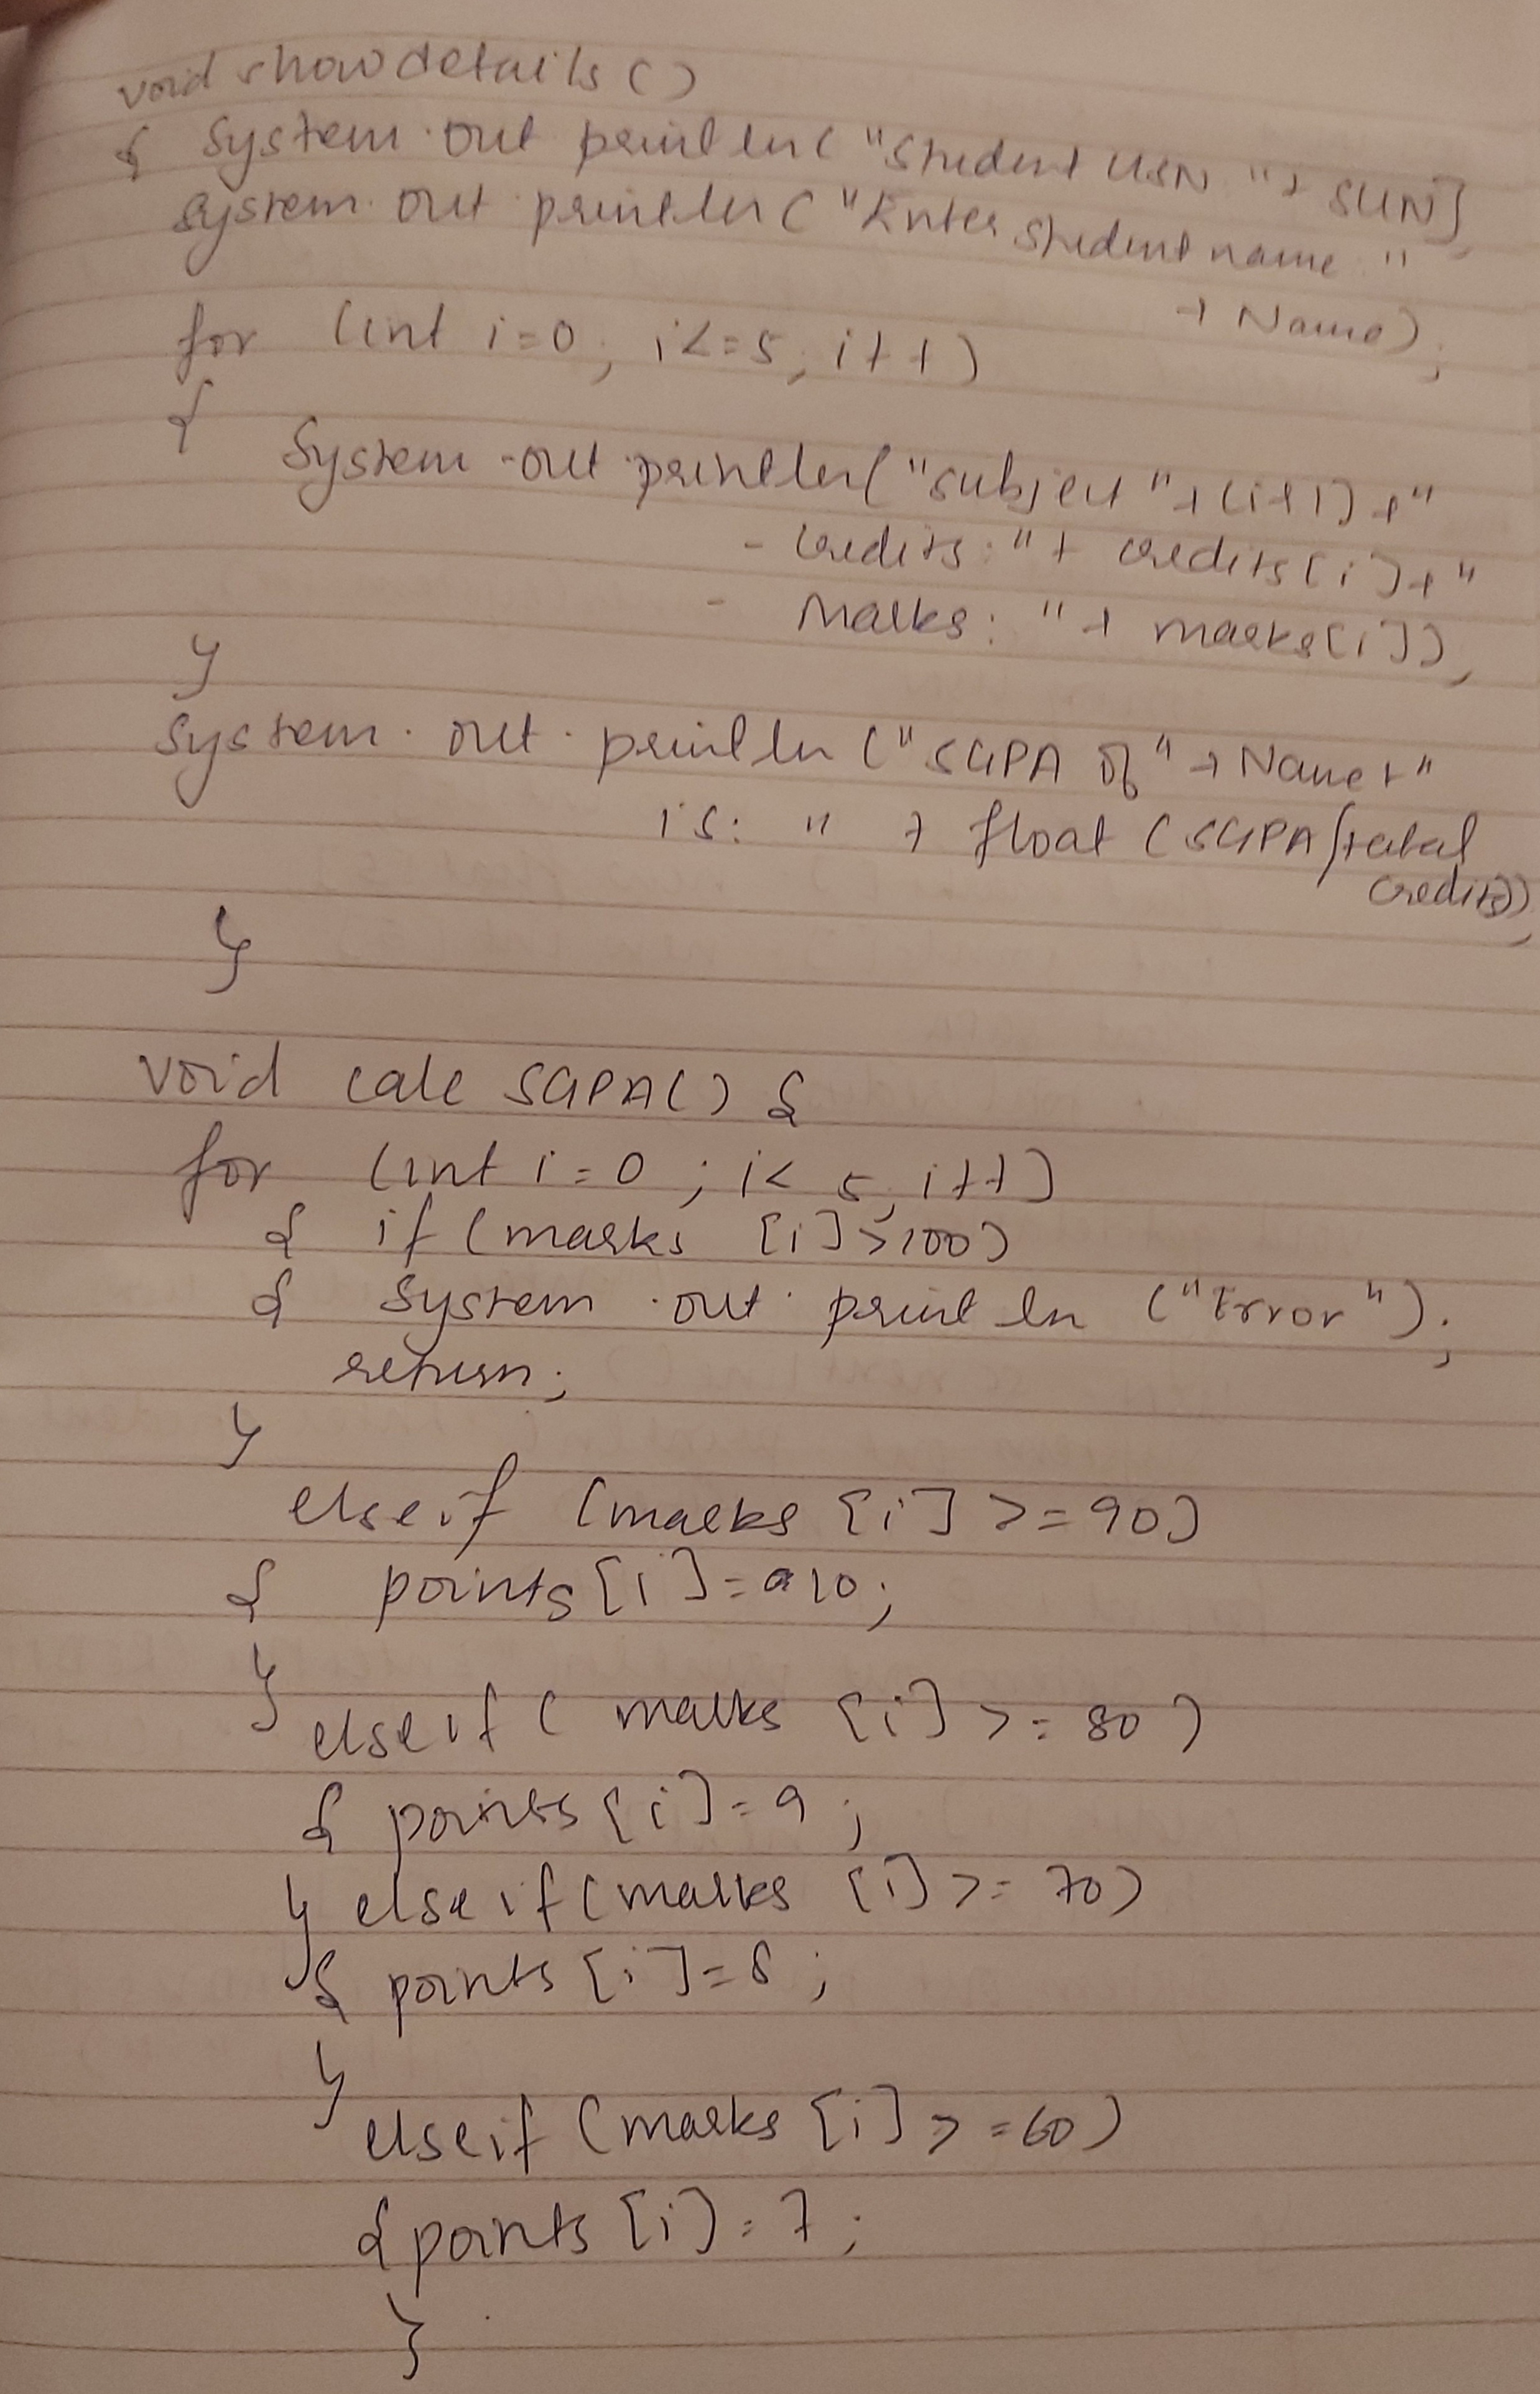 void showdetails()
{ System.out println("Student USN "+ SUN);
System.out println("Enter Student name: "
+ Name);
for (int i=0; i<=5; i++)
{
System.out.println("subject "+(i+1)+"
- Credits: "+ credits[i]+"
- Marks: "+ marks[i]);
}
System.out.println("SGPA of "+Name+"
is: " + float (SGPA/total
credits));
}
void calc SGPA() {
for (int i=0; i< 5; i++)
{ if (marks [i]>100)
{ System.out.println ("Error");
return;
}
else if (marks [i] >=90)
{ points[i]=10;
}
else if ( marks [i] >= 80)
{ points[i]=9;
} else if (marks [i] >= 70)
{ points [i]=8;
}
else if (marks [i] >=60)
{points [i]=7;
}